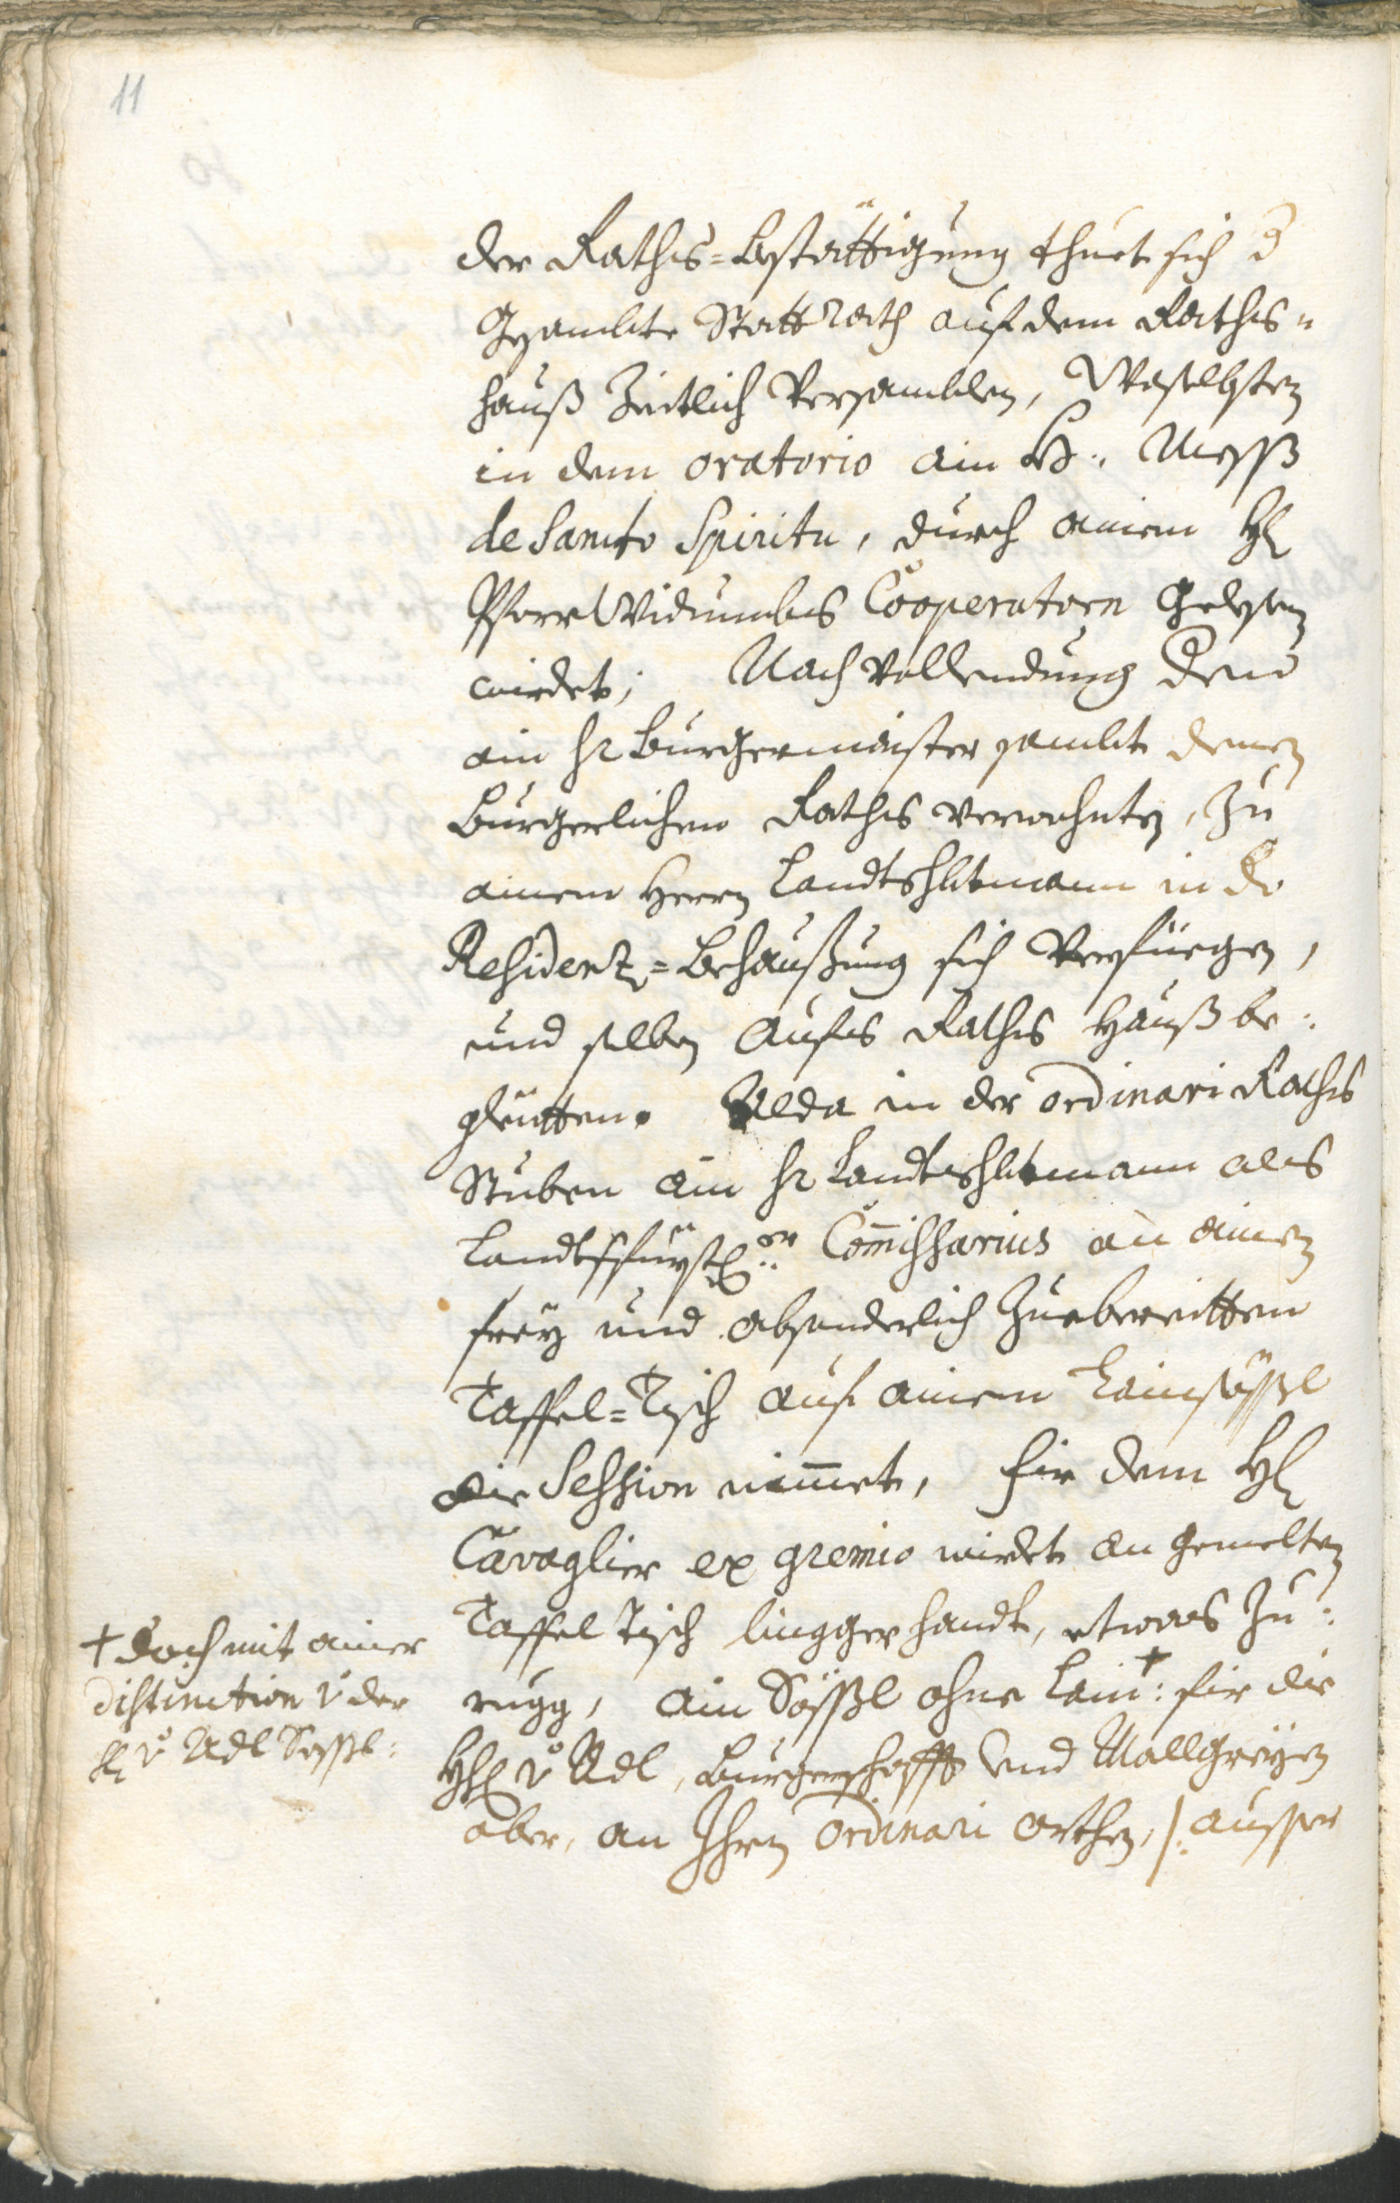 11
der Raths=Bestättigung thuet sich d
Gesambte Statt Rath auf dem Raths=
hauß Zeitlich Versamblen, Woselbsten
in dem oratorio ain H: Mess
de Sancto Spiritu, durch ainem H
Pfarr Widumbs Cooperatorn Gelesen
wirdet; Nach vollendung deme
ain Hr Burgermaister sambt denen
Burgerlichen Raths verwohnten, Zu
ainem Herrn Landtshbtmann in der
Residentz=Behaußung sich Verfüegen,
und selben Aufs Raths Hauß be:
gleitten. Alda in der ordinari Raths
Stuben ain Hr Landtshbtmann als
Landtsfürstl:er Commissarius an ainen
freÿ und absonderlich Zuebereitten
Taffel=Tisch auf ainem Lainsössl
die Session nimmet, fir dem H
Cavaglier ex gremio wirdet an gemelten
Taffel Tisch lingger handt, etwas Zu:
rugg, ain Sössl ohne Lain†: fir die
H v Adl, Burgerschafft und Mallgreÿen
aber, an Ihren ordinari orthen, /: ausser
† doch mit ainer
distinction v der
H v Adl Sössl: